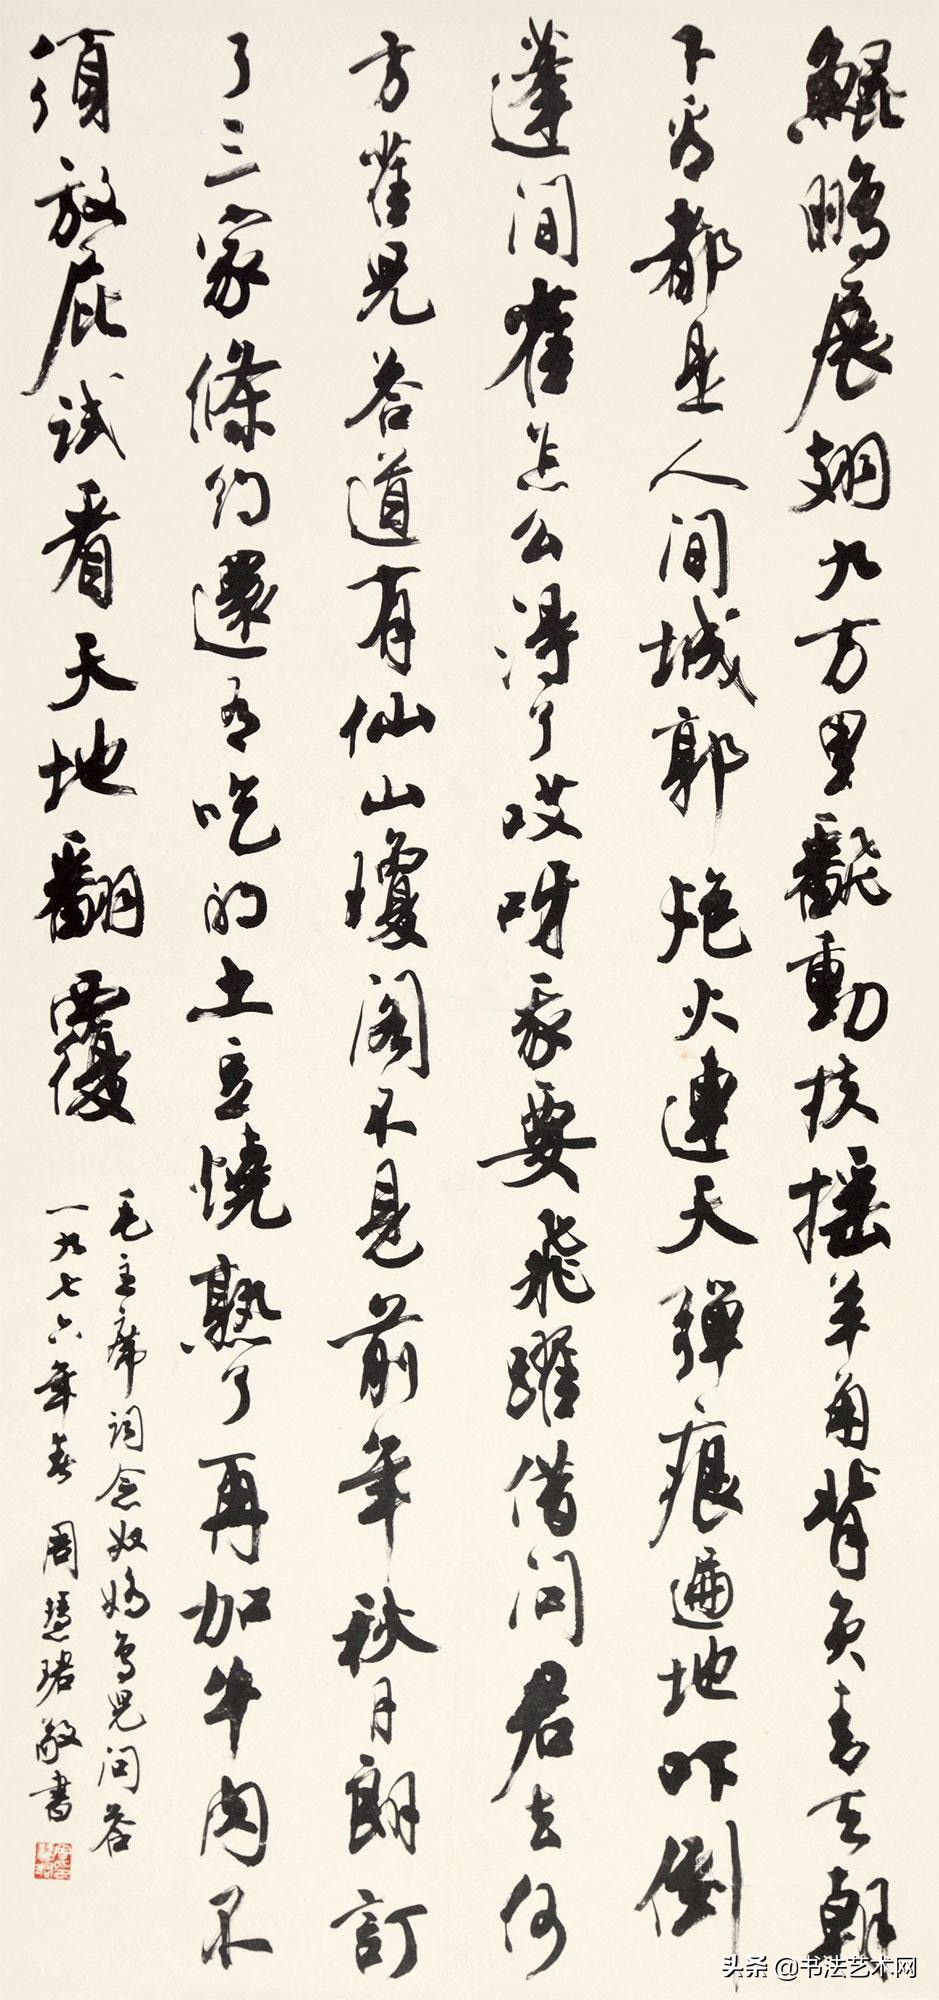 鯤鵬展翅九万里翻動扶搖羊角背負青天朝
下看都是人间城郭炮火連天彈痕遍地吓倒
蓬间雀怎么得了哎呀我要飛躍借问君去何
方雀児答道有仙山瓊阁不見前年秋月朗訂
了三家條約還有吃的土豆燒熟了再加牛肉不
須放屁試看天地翻覆
毛主席词念奴娇鸟児问答
一九七六年春 周慧珺敬書
头条 @书法艺术网